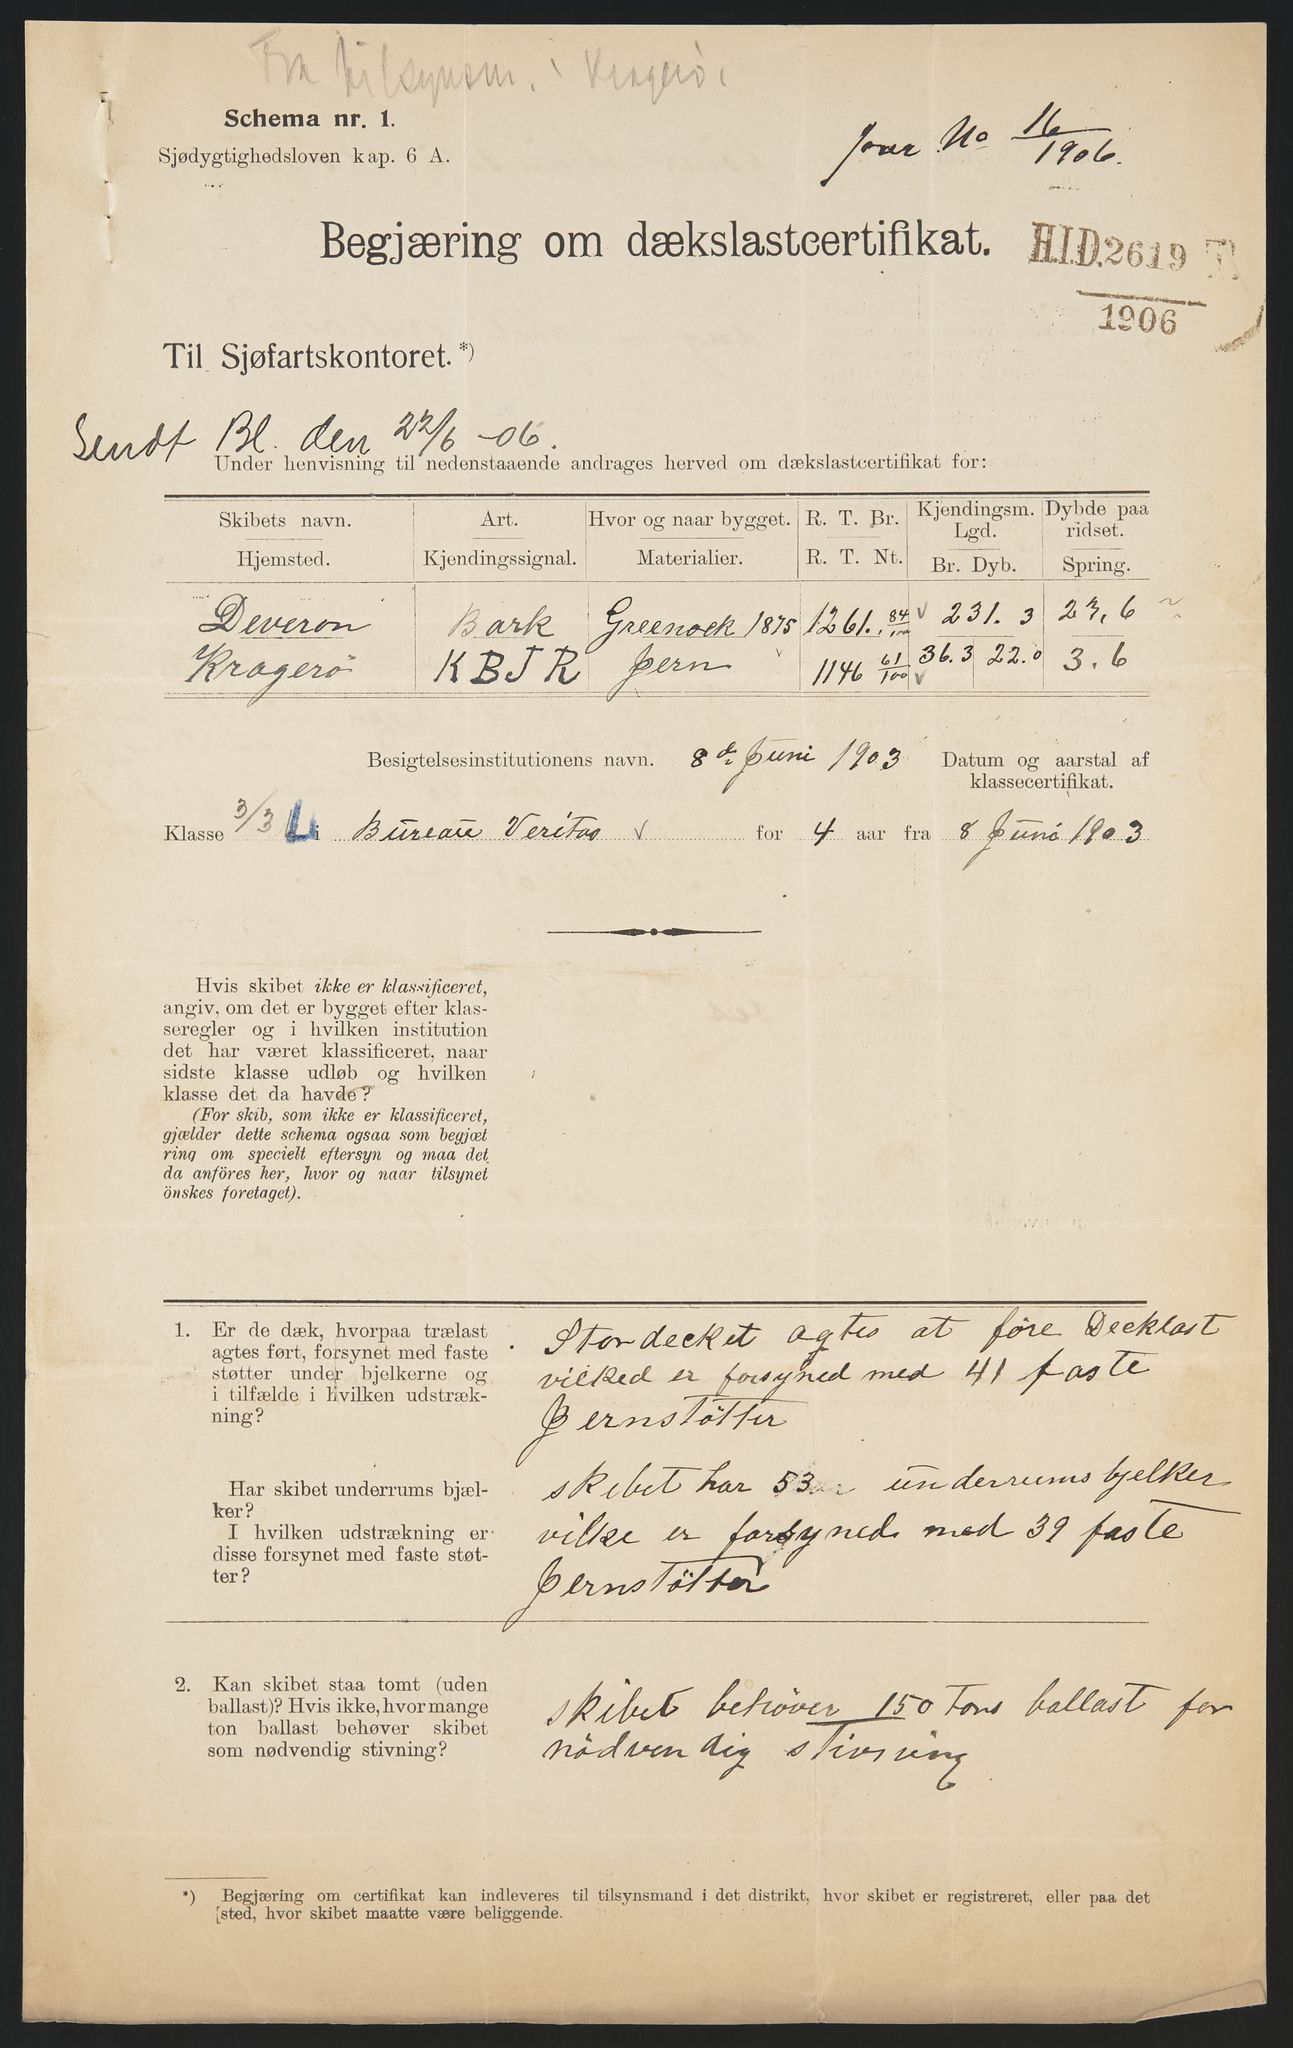 Fra tilsynsm. i Kragerö.
Schema nr. 1.
Sjødygtighedsloven kap. 6 A.
Jour No 16/1906.
Begjæring om dækslastcertifikat.
H.I.D. 2619
1906
Til Sjøfartskontoret.*)
Sendt Bl. den 22/6 -06.
Under henvisning til nedenstaaende andrages herved om dækslastcertifikat for:
Skibets navn. Art. Hvor og naar bygget. R. T. Br. Kjendingsm. Lgd. Dybde paa ridset.
Hjemsted. Kjendingssignal. Materialier. R. T. Nt. Br. Dyb. Spring.
Deveron Bark Greenock 1875 1261. 84/100 231. 3 23, 6
Kragerö K B J R Jern 1146 61/100 36.3 22.0 3. 6
Besigtelsesinstitutionens navn. 8de Juni 1903 Datum og aarstal af
klassecertifikat.
Klasse 3/3 L i Bureau Veritas for 4 aar fra 8 Juni 1903
Hvis skibet ikke er klassificeret,
angiv, om det er bygget efter klas-
seregler og i hvilken institution
det har været klassificeret, naar
sidste klasse udløb og hvilken
klasse det da havde?
(For skib, som ikke er klassificeret,
gjælder dette schema ogsaa som begjæt
ring om specielt eftersyn og maa det
da anföres her, hvor og naar tilsynet
önskes foretaget).
1. Er de dæk, hvorpaa trælast
agtes ført, forsynet med faste
støtter under bjelkerne og
i tilfælde i hvilken udstræk-
ning?
Stordecket agtes at føre Decklast
vilked er forsyned med 41 faste
Jernstötter
Har skibet underrums bjæl-
ker?
I hvilken udstrækning er
disse forsynet med faste støt-
ter?
skibet har 53 underrums bjelker
vilke er forsyned med 39 faste
Jernstötter
2. Kan skibet staa tomt (uden
ballast)? Hvis ikke, hvor mange
ton ballast behøver skibet
som nødvendig stivning?
skibet behöver 150 Tons ballast for
nödvendig stivning
*) Begjæring om certifikat kan indleveres til tilsynsmand i det distrikt, hvor skibet er registreret, eller paa det
[sted, hvor skibet maatte være beliggende.